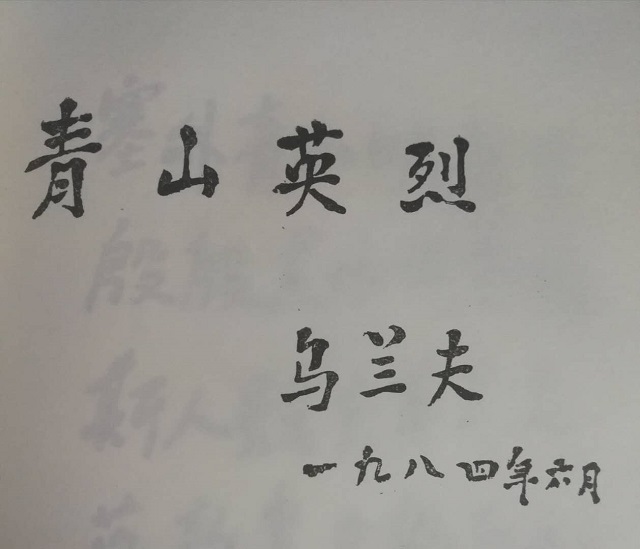 青山英烈
乌兰夫
一九八四年六月